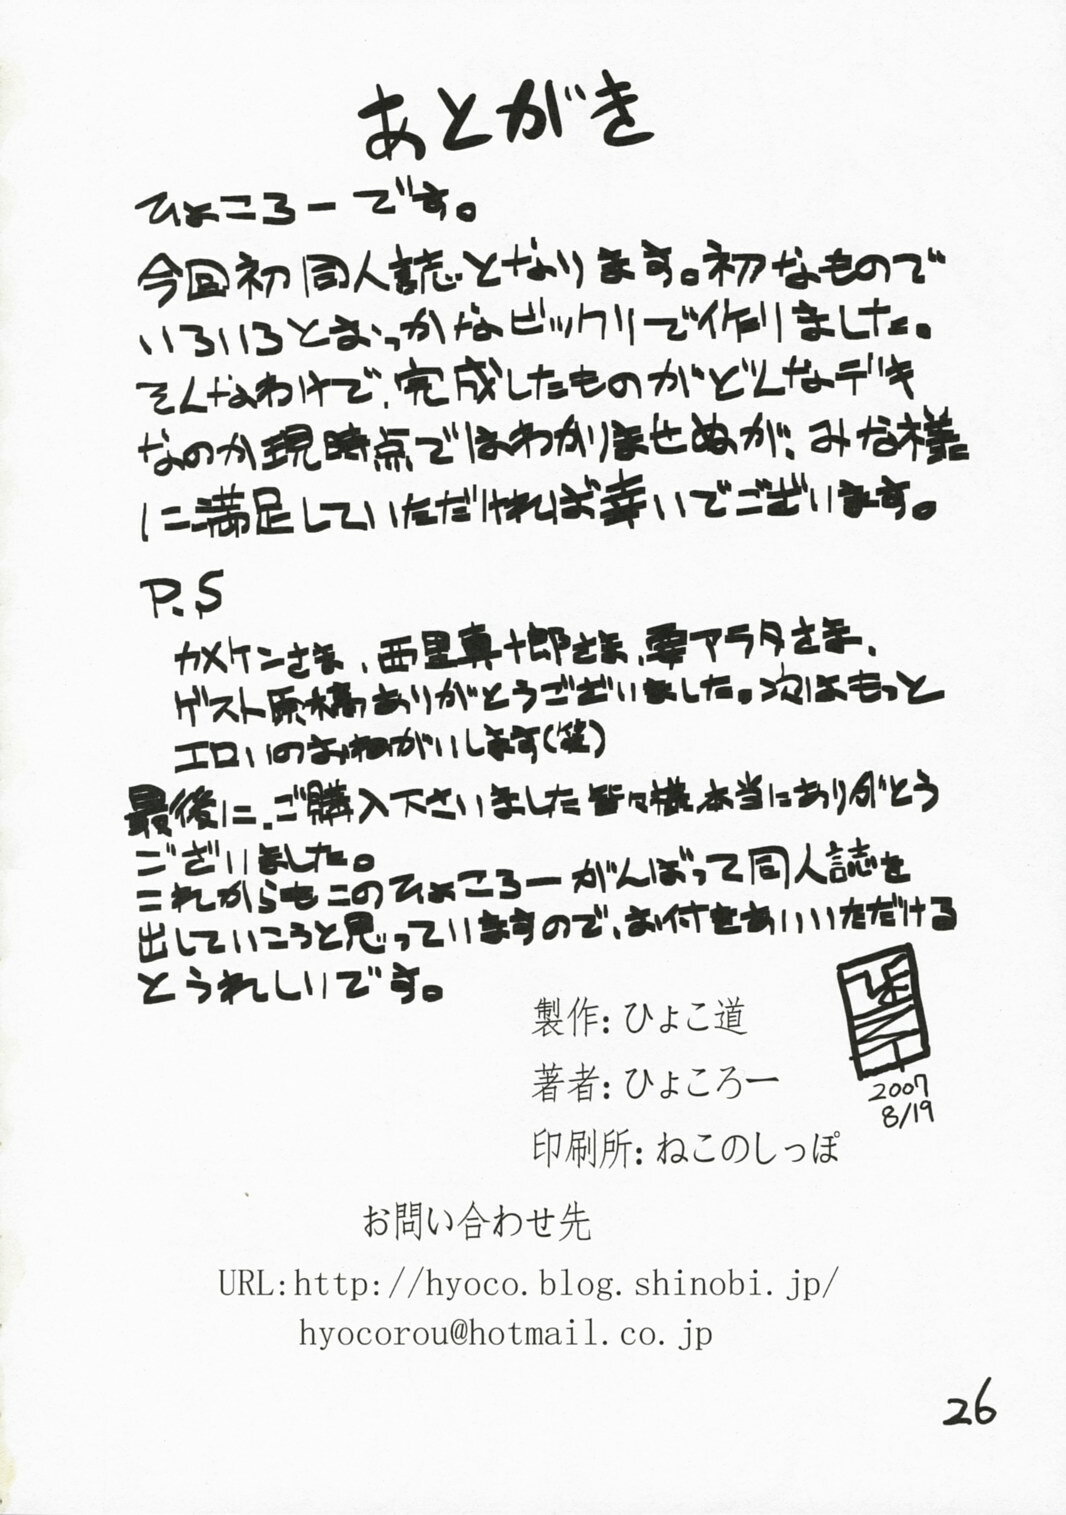 あとがき
ひょころーです。
今回初同人誌となります。初なもので
いろいろとおっかなビックリで作りました。
そんなわけで、完成したものがどんなデキ
なのか現時点ではわかりませぬが、みな様
に満足していただければ幸いでございます。
P.S
カメケンさま、西里真十郎さま、要アラタさま、
ゲスト原稿ありがとうございました。次はもっと
エロいのおねがいします(笑)
最後に、ご購入下さいました皆々様、本当にありがとう
ございました。
これからもこのひょころーがんばって同人誌を
出していこうと思っていますので、お付きあいいただける
とうれしいです。
製作:ひょこ道
著者:ひょころー
印刷所:ねこのしっぽ
2007
8/19
お問い合わせ先
URL:http://hyoco.blog.shinobi.jp/
hyocorou@hotmail.co.jp
26